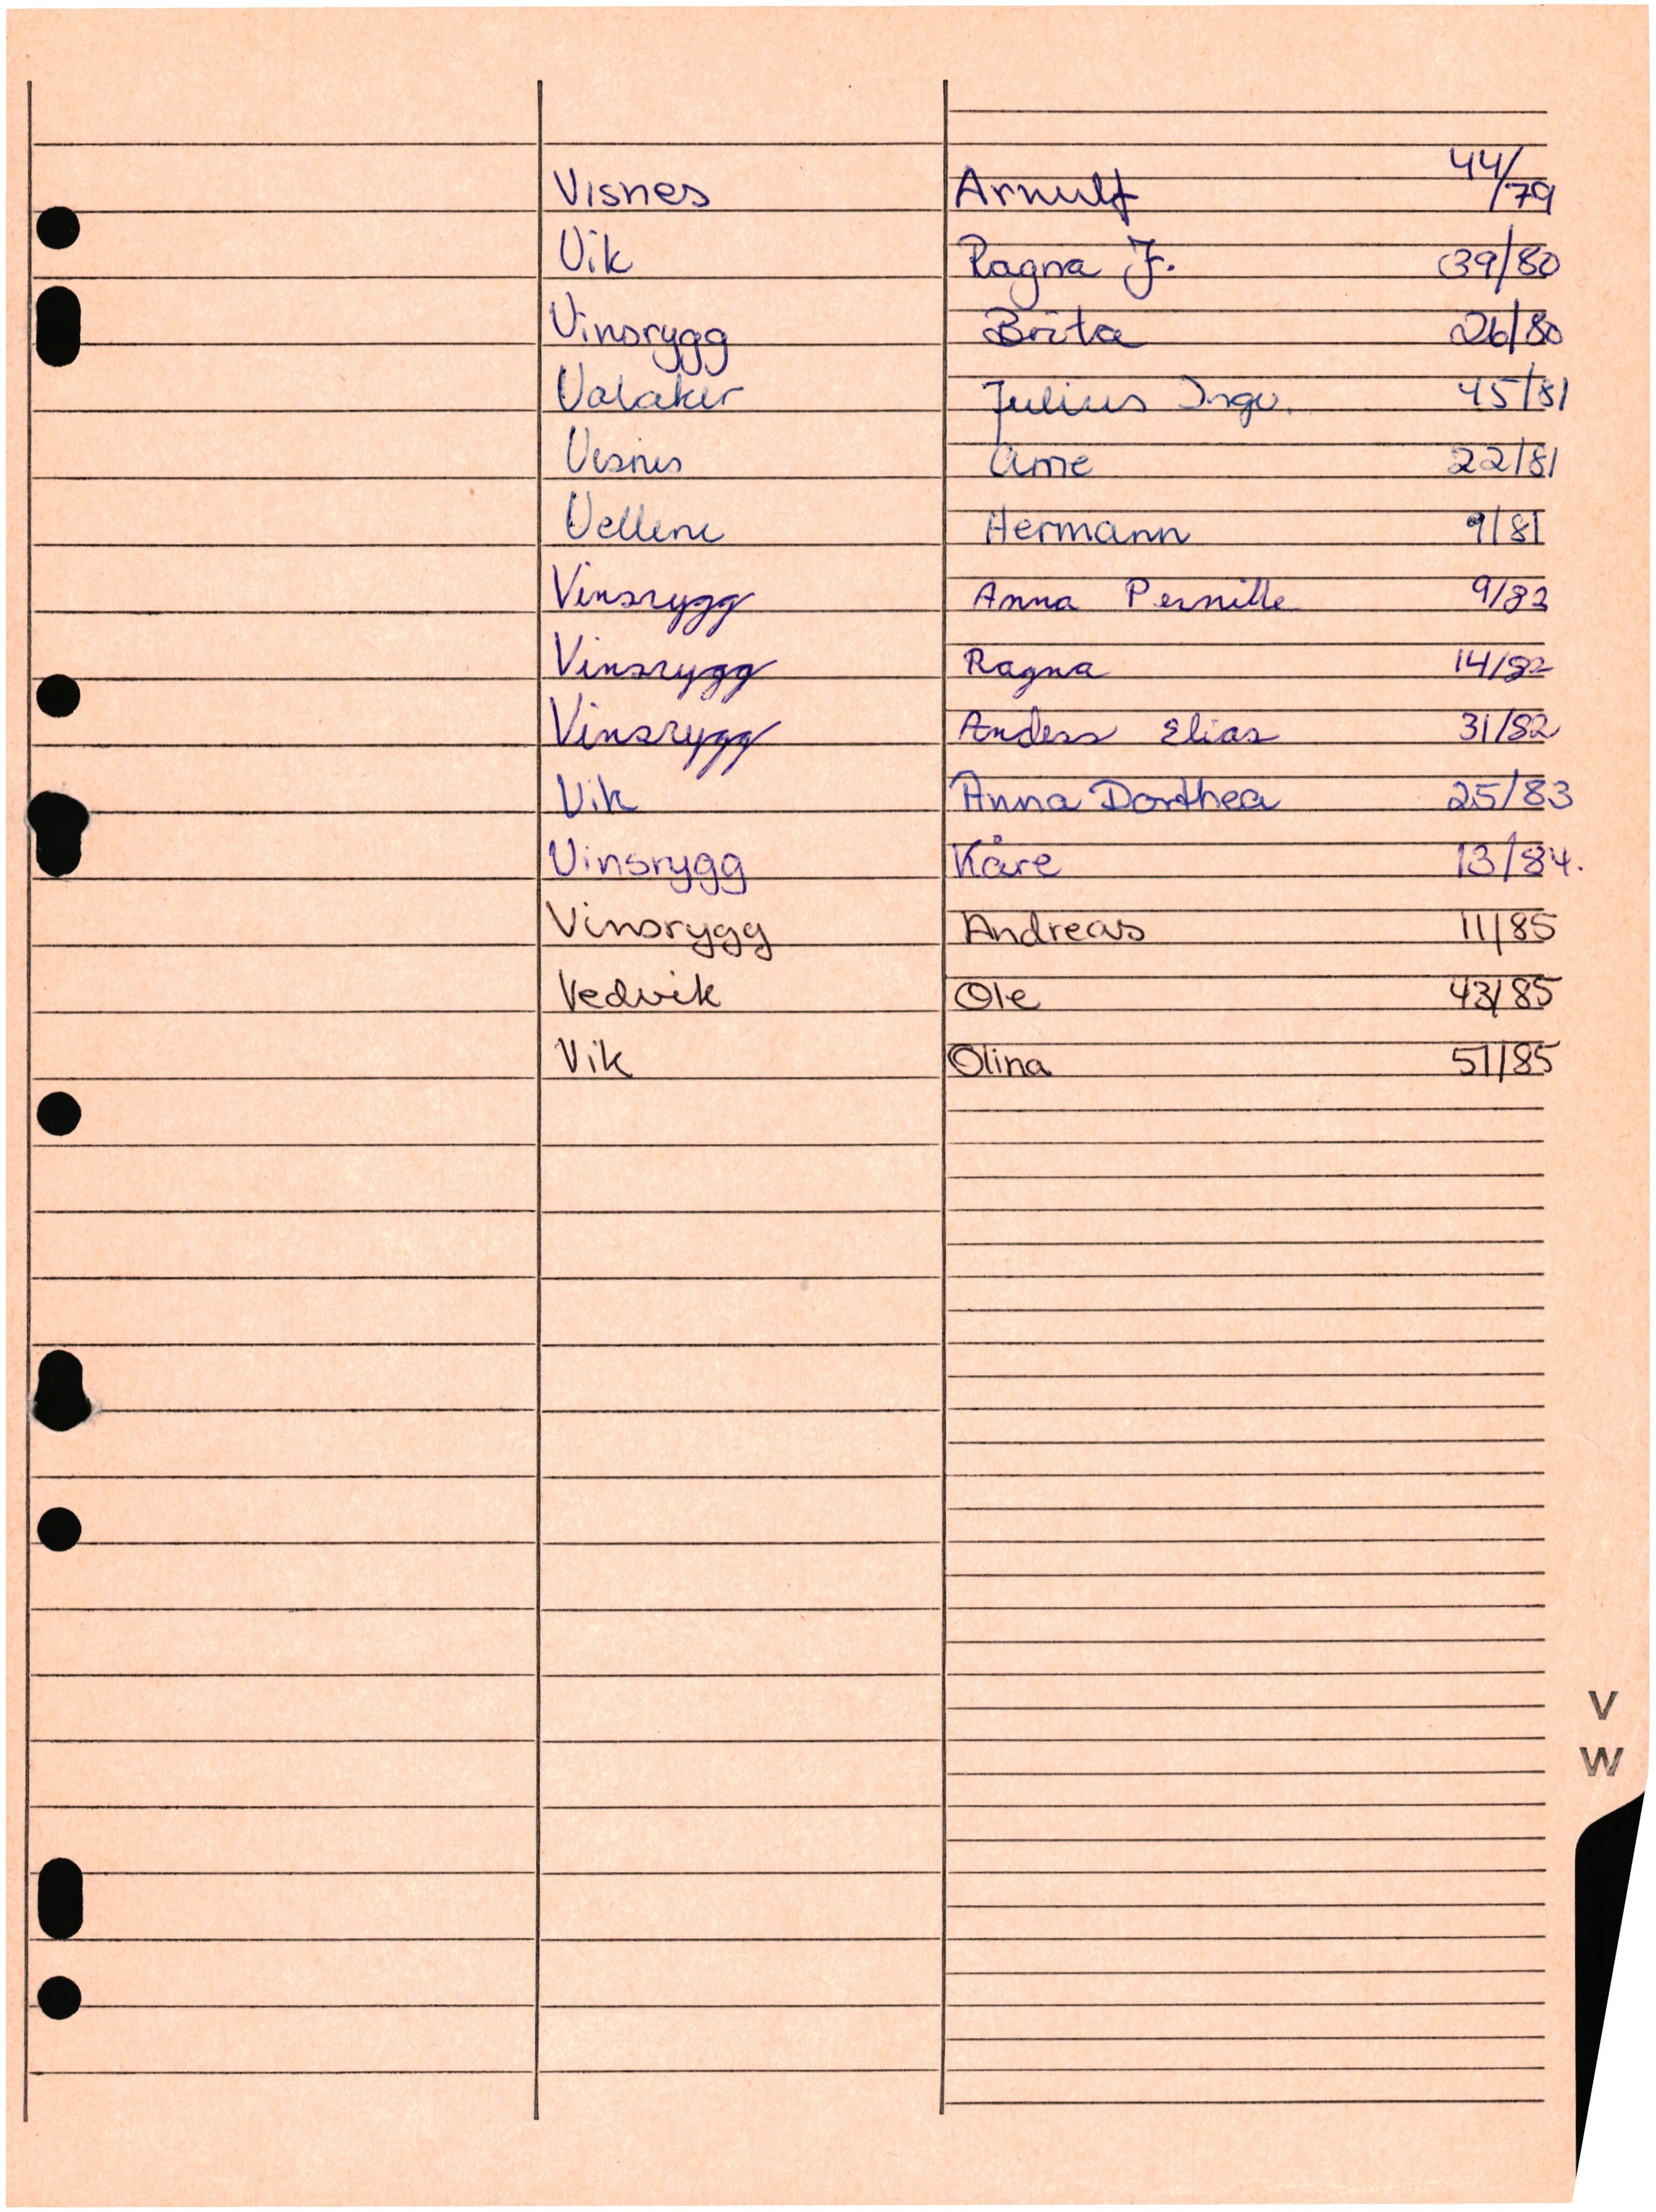 Visnes Arnulf 44/79
Vik Ragna J. 39/80
Vinsrygg Brita 26/80
Valaker Julius Ingv. 45/81
Visnes Arne 22/81
Vellene Hermann 9/81
Vinsrygg Anna Pernille 9/82
Vinsrygg Ragna 14/82
Vinsrygg Anders Elias 31/82
Vik Anna Dorthea 25/83
Vinsrygg Kåre 13/84.
Vinsrygg Andreas 11/85
Vedvik Ole 43/85
Vik Olina 51/85
V
W